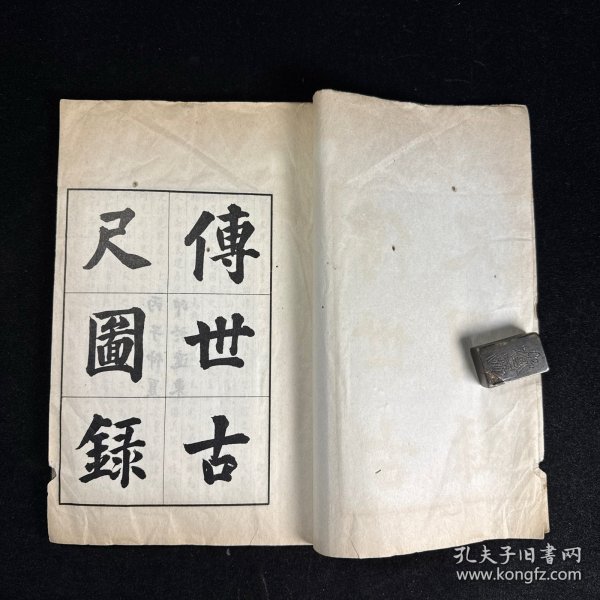 傳世古
尺圖錄
孔夫子旧書网
www.kongfz.com